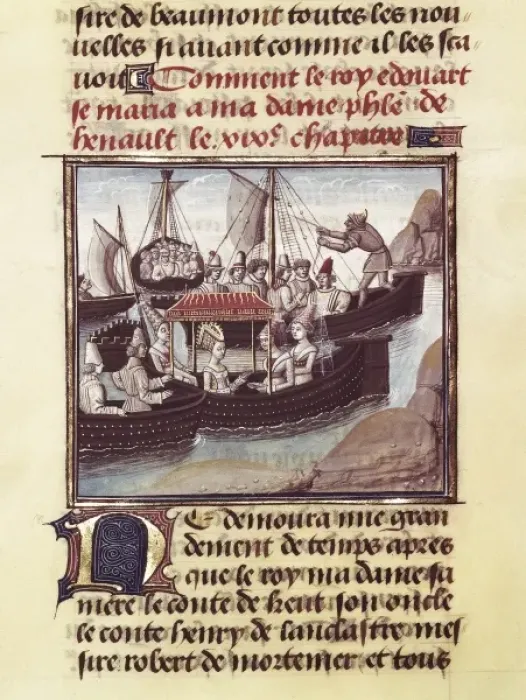 sire de beaumont toutes les nou
uelles si auant comme il les sca
uoit Comment le roy edouart
se maria a ma dame phlē de
henault le .xixe. chapitre
Ne demoura mie gran
dement de temps apres
que le roy ma dame sa
mere le conte de kent son oncle
le conte henry de lanclastre mes
sire robert de mortemer et tous